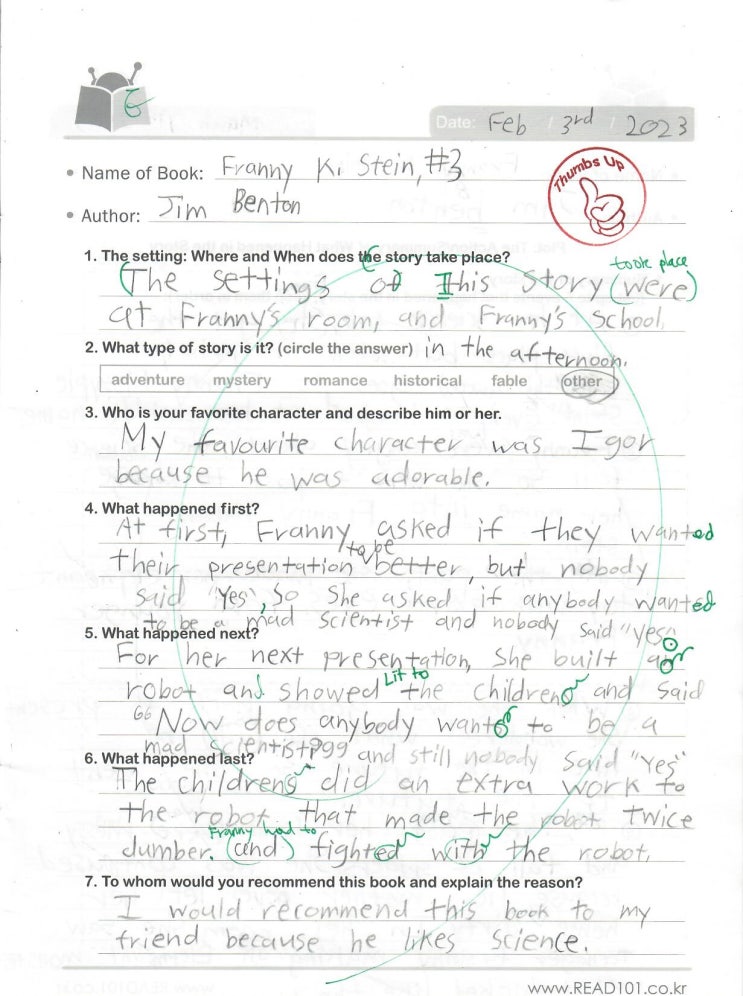 6
Date: Feb / 3rd / 2023
• Name of Book: Franny K. Stein, #3
Thumbs Up
• Author: Jim Benton
1. The setting: Where and When does the story take place?
took place
The settings of This story (were)
at Franny's room, and Franny's school
2. What type of story is it? (circle the answer) in the afternoon.
adventure mystery romance historical fable other
3. Who is your favorite character and describe him or her.
My favourite character was Igor
because he was adorable.
4. What happened first?
At first, Franny asked if they wanted
to be
their presentation better, but nobody
said "Yes", So she asked if anybody wanted
to be a mad scientist and nobody said "yes".
5. What happened next?
For her next presentation, she built a
Lit to
robot and showed the children and said
"Now does anybody want to be a
mad scientist?" and still nobody said "Yes"
6. What happened last?
The childrens did an extra work to
the robot that made the robot twice
Franny had to
dumber. (and) fighted with the robot.
7. To whom would you recommend this book and explain the reason?
I would recommend this book to my
friend because he likes science.
www.READ101.co.kr